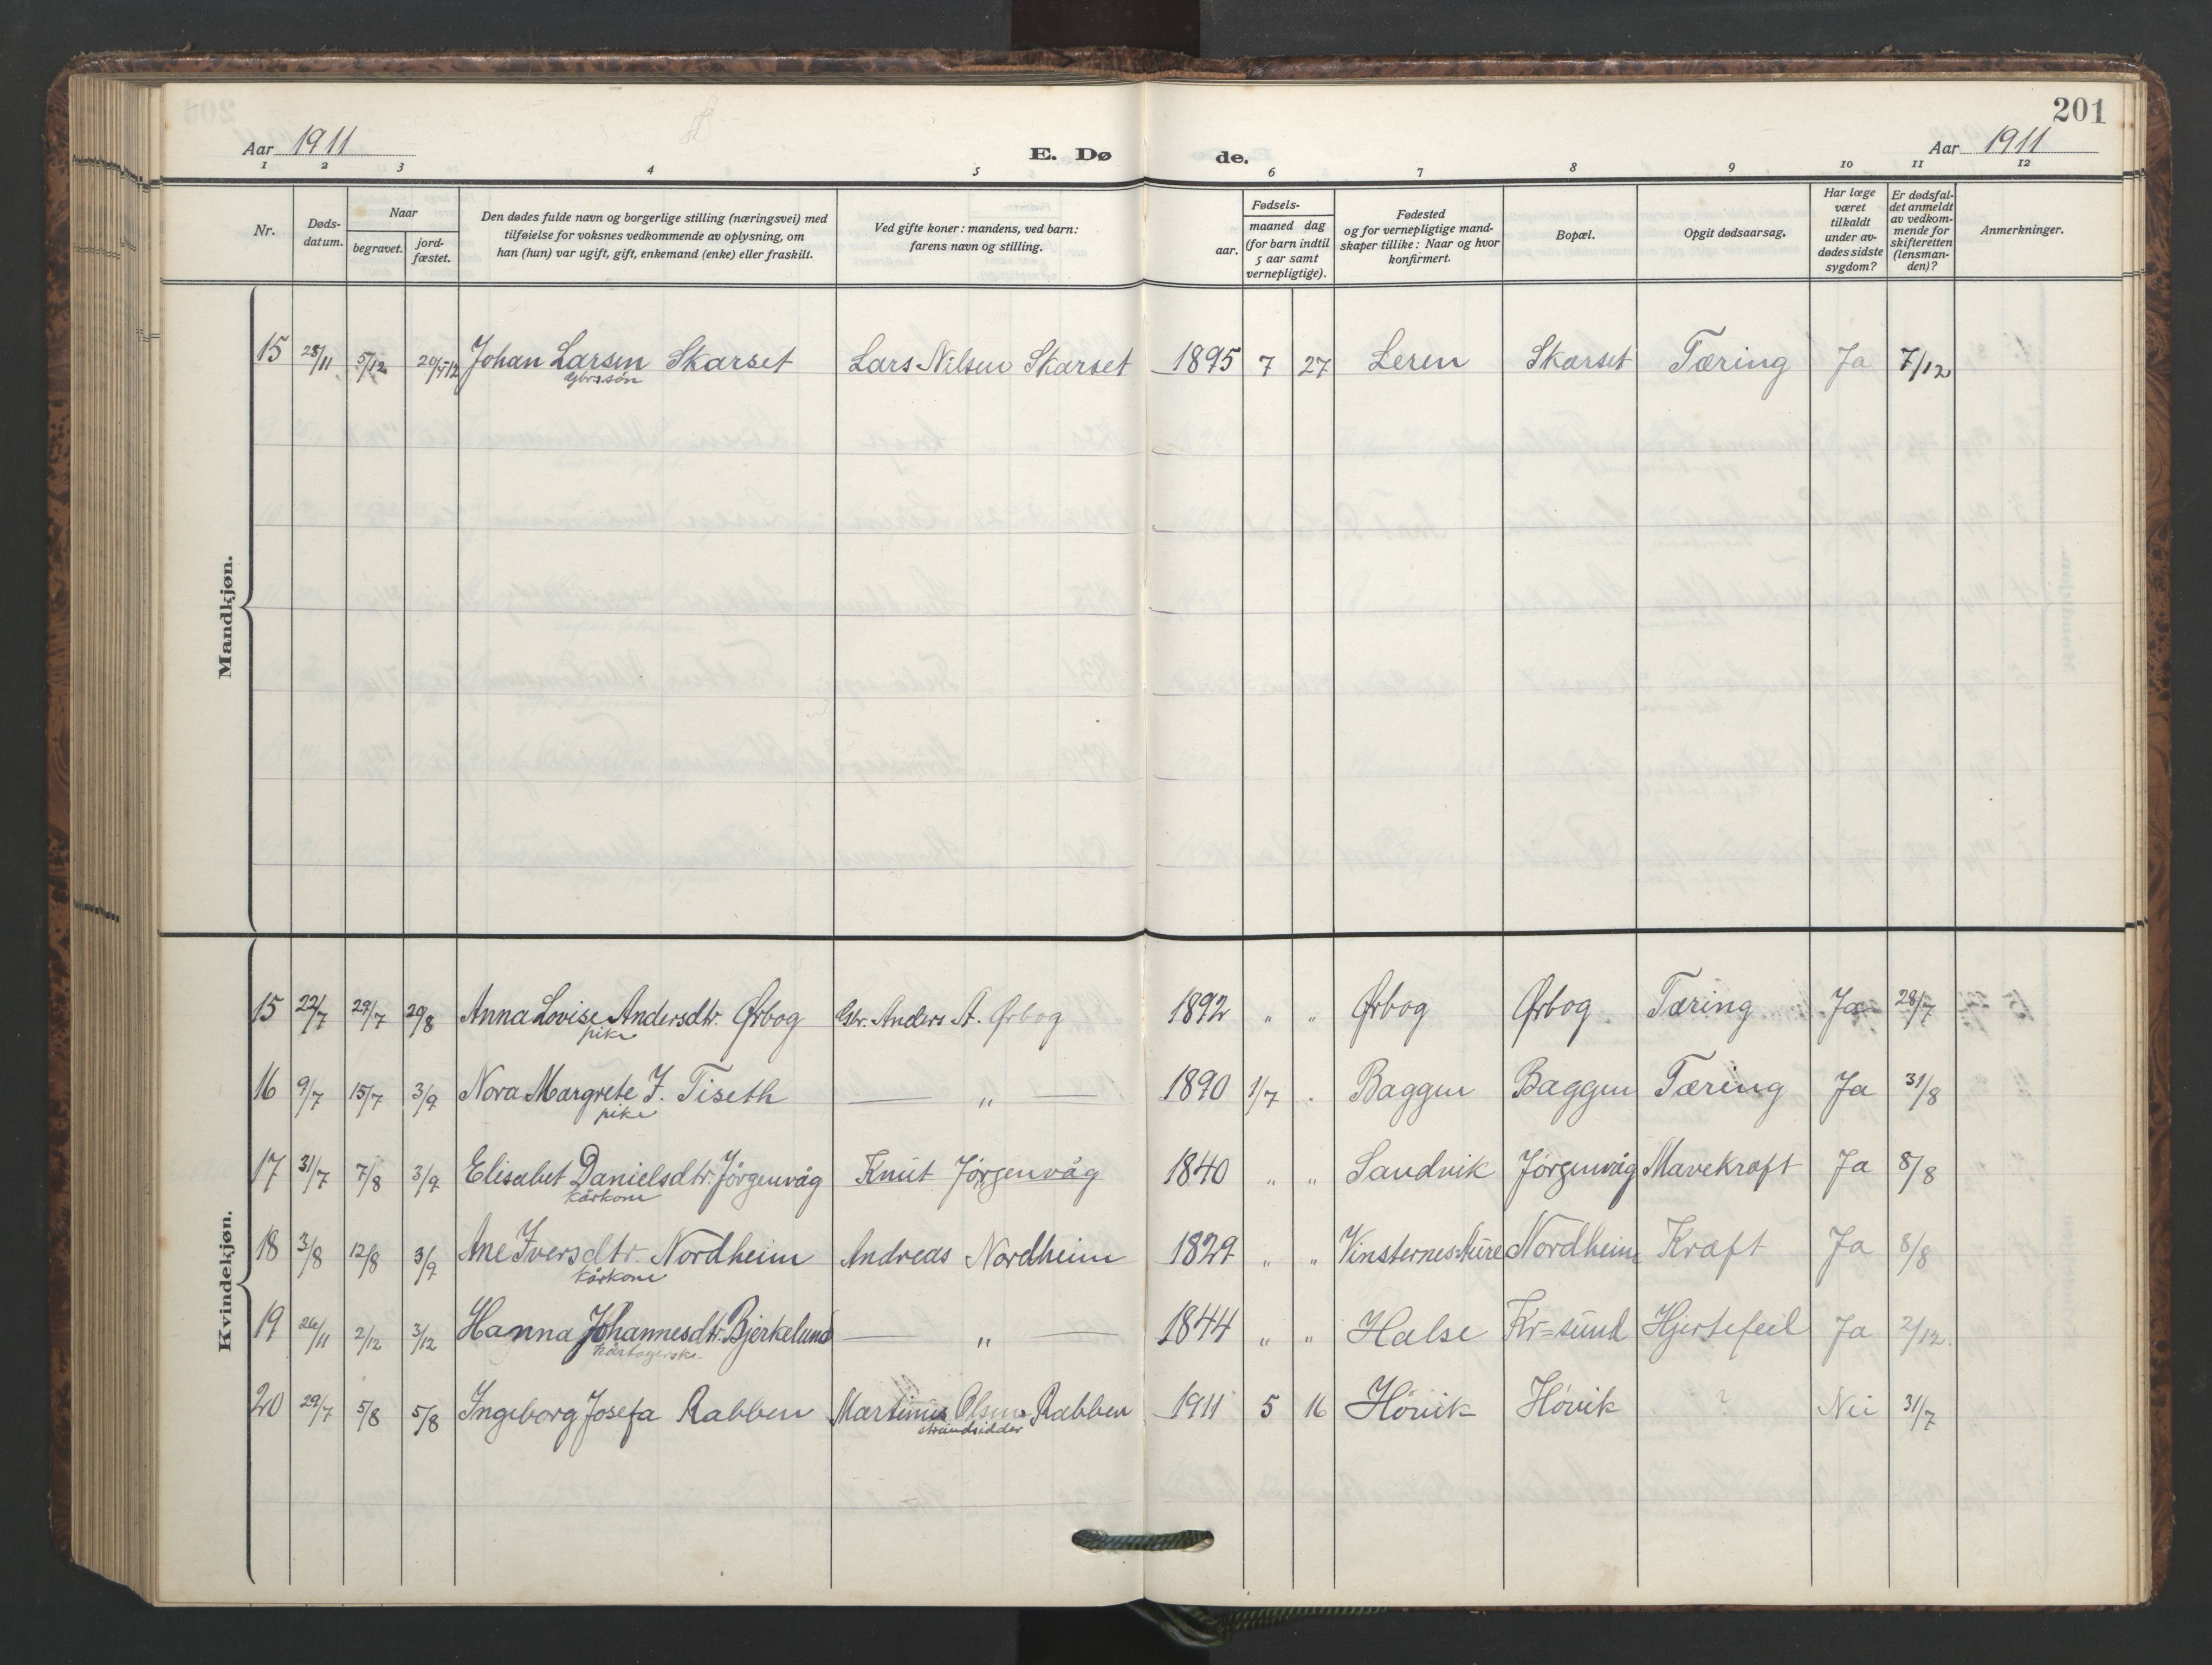 201
Aar 1911
E. Dø de.
Aar 1911
1 2 3 4 5 6 7 8 9 10 11 12
Nr.
Døds-
datum.
Naar
begravet.
jord-
fæstet.
Den dødes fulde navn og borgerlige stilling (næringsvei) med
tilføielse for voksnes vedkommende av oplysning, om
han (hun) var ugift, gift, enkemand (enke) eller fraskilt.
Ved gifte koner: mandens, ved barn:
farens navn og stilling.
Fødsels-
aar.
maaned dag
(for barn indtil
5 aar samt
vernepligtige).
Fødested
og for vernepligtige mand-
skaper tillike: Naar og hvor
konfirmert.
Bopæl.
Opgit dødsaarsag.
Har læge
været
tilkaldt
under av-
dødes sidste
sygdom?
Er dødsfal-
det anmeldt
av vedkom-
mende for
skifteretten
(lensman-
den)?
Anmerkninger.
Mandkjøn.
15 28/11 5/12 Johan Larsen Skarset Lars Nilsen Skarset 1895 7 27 Leren Skarset Tæring Ja 7/12
Gbr.søn
Kvindekjøn.
15 22/7 29/7 29/8 Anna Lovise Andersdtr. Ørbog Gbr. Anders A. Ørbog 1892 " " Ørbog Ørbog Tæring Ja 28/7
pike
16 9/7 15/7 3/9 Nora Margrete J. Tiseth — " — 1890 1/7 . Baggen Baggen Tæring Ja 31/8
pike
17 31/7 7/8 3/9 Elisabet Danielsdtr. Jörgenvåg Knut Jörgenvåg 1840 " " Sandvik Jörgenvåg Mavekræft Ja 8/8
Kårkone
18 3/8 12/8 3/9 Ane Iversdtr. Nordheim Andreas Nordheim 1829 " " Vinsternes-Aure Nordheim Kræft Ja 8/8
Kårkone
19 26/11 2/12 3/12 Hanna Johannesdtr. Bjerkelund — " — 1844 " " Halse Kr=sund Hjertefeil Ja 2/12.
20 29/7 5/8 5/8 Ingeborg Josefa Rabben Martinus Olsen Rabben 1911 5 16 Hövik Hövik ? Nei 31/7
strandsidder